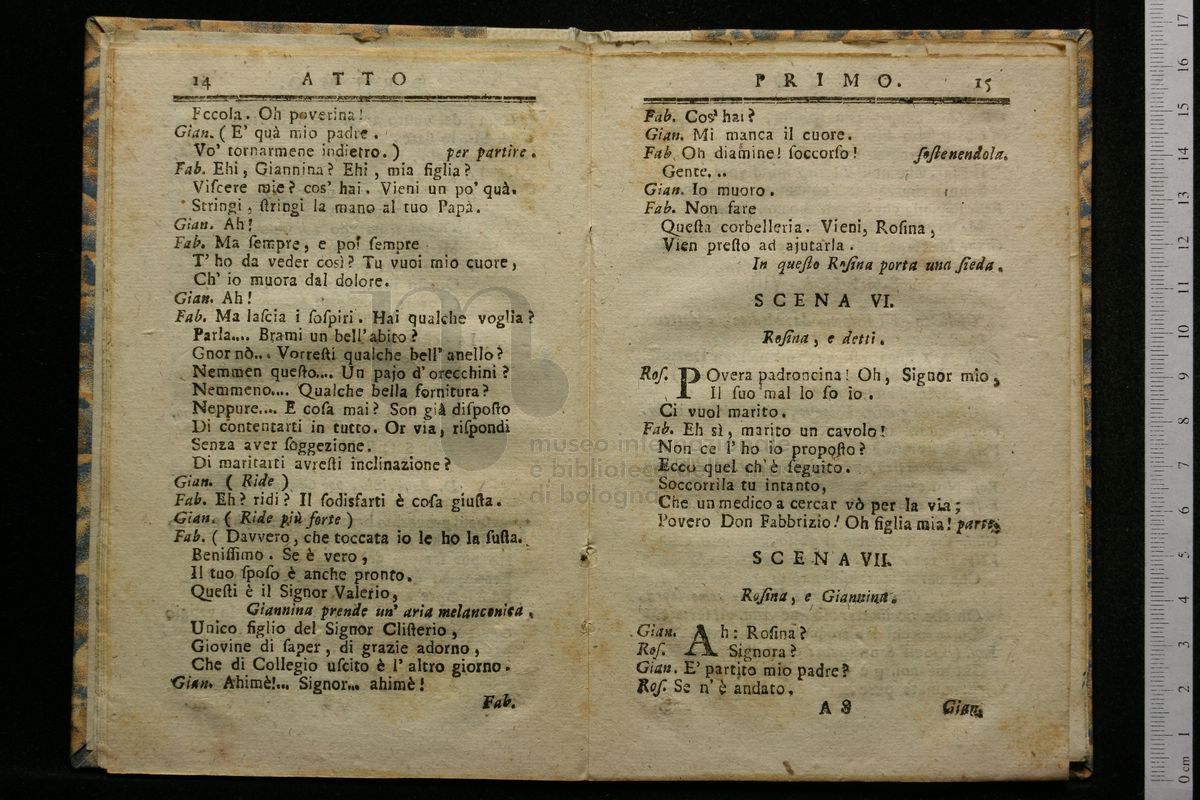 14 ATTO
Eccola. Oh poverina!
Gian. ( E' quà mio padre.
Vo' tornarmene indietro. ) per partire.
Fab. Ehi, Giannina? Ehi, mia figlia?
Viſcere mie? cos' hai. Vieni un po' quà.
Stringi, ſtringi la mano al tuo Papà.
Gian. Ah!
Fab. Ma ſempre, e poi ſempre
T' ho da veder così? Tu vuoi mio cuore,
Ch' io muora dal dolore.
Gian. Ah!
Fab. Ma laſcia i ſoſpiri. Hai qualche voglia?
Parla.... Brami un bell' abito?
Gnor nò... Vorreſti qualche bell' anello?
Nemmen queſto.... Un pajo d' orecchini?
Nemmeno.... Qualche bella fornitura?
Neppure.... E coſa mai? Son già diſpoſto
Di contentarti in tutto. Or via, riſpondi
Senza aver ſoggezione.
Di maritarti avreſti inclinazione?
Gian. ( Ride )
Fab. Eh? ridi? Il ſodisfarti è coſa giuſta.
Gian. ( Ride più forte )
Fab. ( Davvero, che toccata io le ho la ſuſta.
Beniſſimo. Se è vero,
Il tuo ſpoſo è anche pronto.
Queſti è il Signor Valerio,
Giannina prende un' aria melanconica.
Unico figlio del Signor Cliſterio,
Giovine di ſaper, di grazie adorno,
Che di Collegio uſcito è l' altro giorno.
Gian. Ahimè!... Signor... ahimè!
Fab.
PRIMO. 15
Fab. Cos' hai?
Gian. Mi manca il cuore.
Fab Oh diamine! ſoccorſo! ſoſtenendola.
Gente...
Gian. Io muoro.
Fab. Non fare
Queſta corbelleria. Vieni, Roſina,
Vien preſto ad ajutarla.
In queſto Roſina porta una ſieda.
SCENA VI.
Roſina, e detti.
Roſ. POvera padroncina! Oh, Signor mio,
Il ſuo mal lo ſo io.
Ci vuol marito.
Fab. Eh sì, marito un cavolo!
Non ce l' ho io propoſto?
Ecco quel ch' è ſeguito.
Soccorrila tu intanto,
Che un medico a cercar vò per la via;
Povero Don Fabbrizio! Oh figlia mia! parte.
SCENA VII.
Roſina, e Giannina.
Gian. Ah: Roſina?
Roſ. Signora?
Gian. E' partito mio padre?
Roſ. Se n' è andato.
A 8 Gian.
museo internazionale
e biblioteca de
di bologna
0 cm 1 2 3 4 5 6 7 8 9 10 11 12 13 14 15 16 17